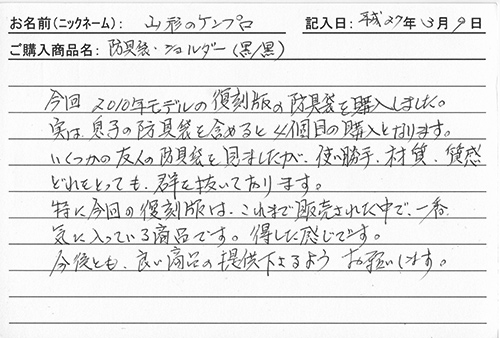 お名前(ニックネーム): 山形のケンプロ 記入日: 平成27年 3月 9日
ご購入商品名: 防具袋・ショルダー(黒/黒)
今回 2010年モデルの復刻版の防具袋を購入しました。
実は息子の防具袋を含めると4個目の購入となります。
いくつかの友人の防具袋を見ましたが、使い勝手、材質、質感
どれをとっても、群を抜いております。
特に今回の復刻版は、これまで販売された中で、一番
気に入っている商品です。得した感じです。
今後とも、良い商品の提供下さるよう お願いします。